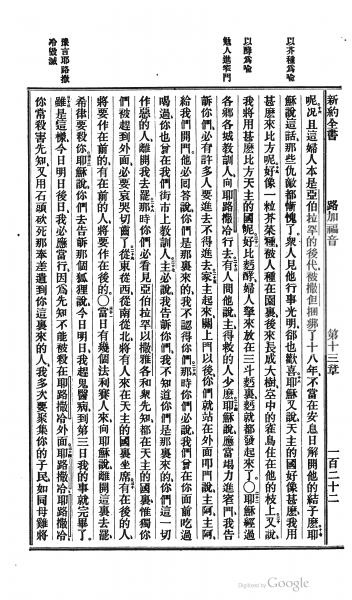 新約全書 路加福音 第十三章 一百二十二
以芥種爲喻
以酵爲喻
勉人進窄門
豫言耶路撒
冷破滅
呢況且這婦人本是亞伯拉罕的後代被撒但捆綁了十八年不當在安息日解開他的結子麽耶
穌說這話那些仇敵都慚愧了衆人見他行事光明卻也歡喜耶穌又說天主的國好像甚麽我用
甚麽來比方呢好像一粒芥菜種被人種在園裏後來長成大樹空中的雀鳥住在他的枝上又說
我將用甚麽比方天主的國呢好比麪酵婦人拏來放在三斗麪裏麪就都發起來了○耶穌經過
各鄉各城教訓人向耶路撒冷行去有人問他說主得救的人少麽耶穌說應當竭力進窄門我告
訴你們必有許多人要進去不得進去家主起來關上門以後你們就站在外面叩門說主阿主阿
給我們開門他必回答說你們是那裏來的我不認得你們那時你們必說我們曾在你面前吃過
喝過你也曾在我們街市上教訓人主必說我告訴你們我不知道你們是那裏來的你們這一切
作惡的人離開我去罷那時你們必看見亞伯拉罕以撒雅各和衆先知都在天主的國裏惟獨你
們被趕到外面必要哀哭切齒了從東從西從南從北將有人來在天主的國裏坐席有在後的人
將要作在前的有在前的人將要作在後的○當日有幾個法利賽人來向耶穌說離開這裏去罷
希律要殺你耶穌說你們去告訴那個狐狸說今日明日我趕鬼醫病到第三日我的事就完畢了
雖是這樣今日明日後日我必應當行因爲先知不能被殺在耶路撒冷外面耶路撒冷耶路撒冷
你常殺害先知又用石頭砍死那奉差遣到你這裏來的人我多次要聚集你的子民如同母雞將
Digitized by Google